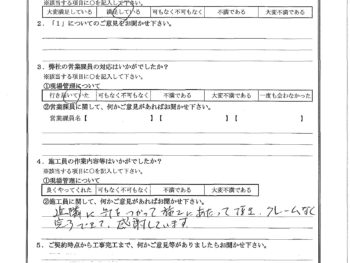 ※該当する項目に○を記入して下さい。
大変満足している 満足している 可もなく不可もなく 不満である 大変不満である
2．「1」についてのご意見をお聞かせ下さい。
3．弊社の営業課員の対応はいかがでしたか？
※該当する項目に○を記入して下さい。
①現場管理について
行き届いていた 可もなく不可もなく 不満である 大変不満である 一度も会わなかった
②営業課員に関して、何かご意見があればお聞かせ下さい。
営業課員名【 】【 】
4．施工員の作業内容等はいかがでしたか？
※該当する項目に○を記入して下さい。
①現場管理について
良くやってくれた 可もなく不可もなく 不満である 大変不満である
②施工員に関して、何かご意見があればお聞かせ下さい。
近隣に気をつかって施工にあたって頂き、クレームなく
完了できて、感謝しています
5．ご契約時点から工事完工まで、何かご意見等がありましたらお聞かせ下さい。